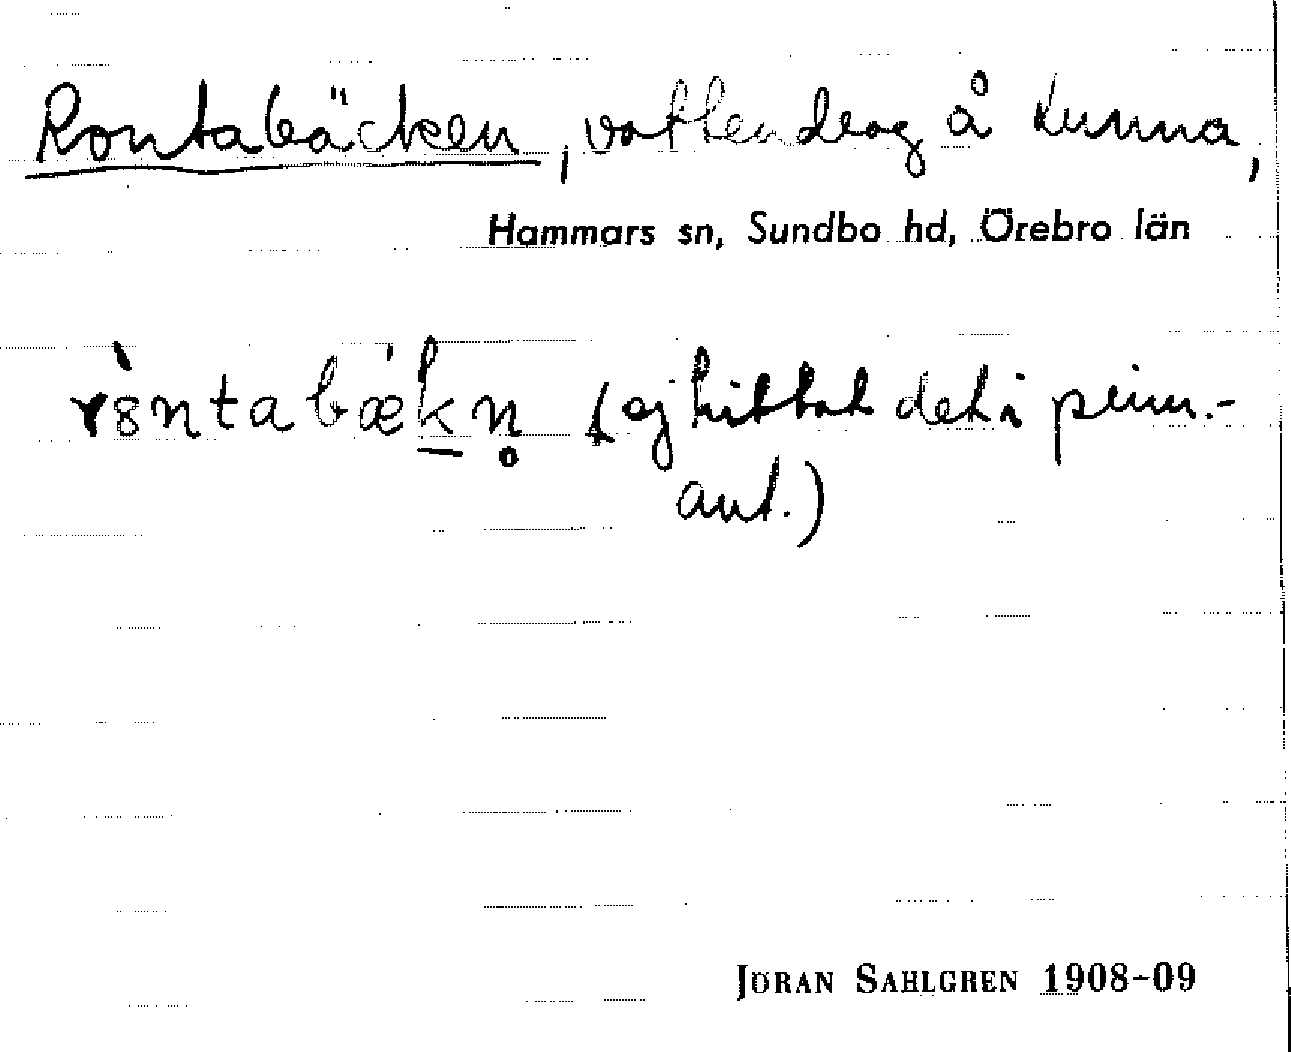 Rontabäcken, vattendrag å Kunna,
Hammars sn, Sundbo hd, Örebro län
rò̀ntabæ'k̲n̥ (ej hittat det i prim.-
ant.)
JÖRAN SAHLGREN 1908-09